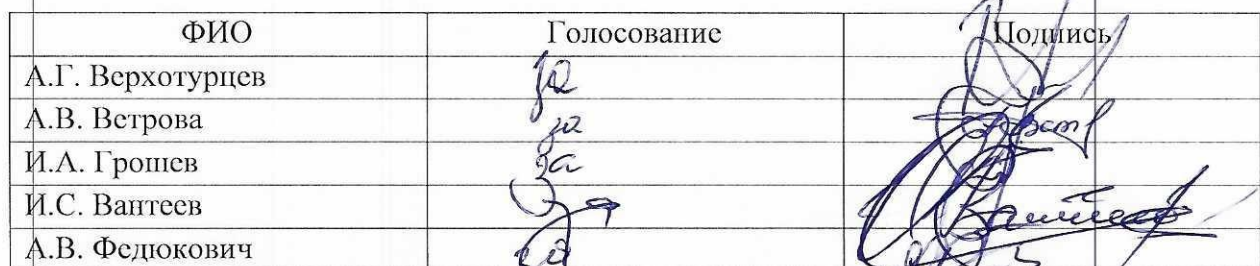 ФИО Голосование Подпись
А.Г. Верхотурцев за
А.В. Ветрова за
И.А. Грошев за
И.С. Вантеев за
А.В. Федюкович за